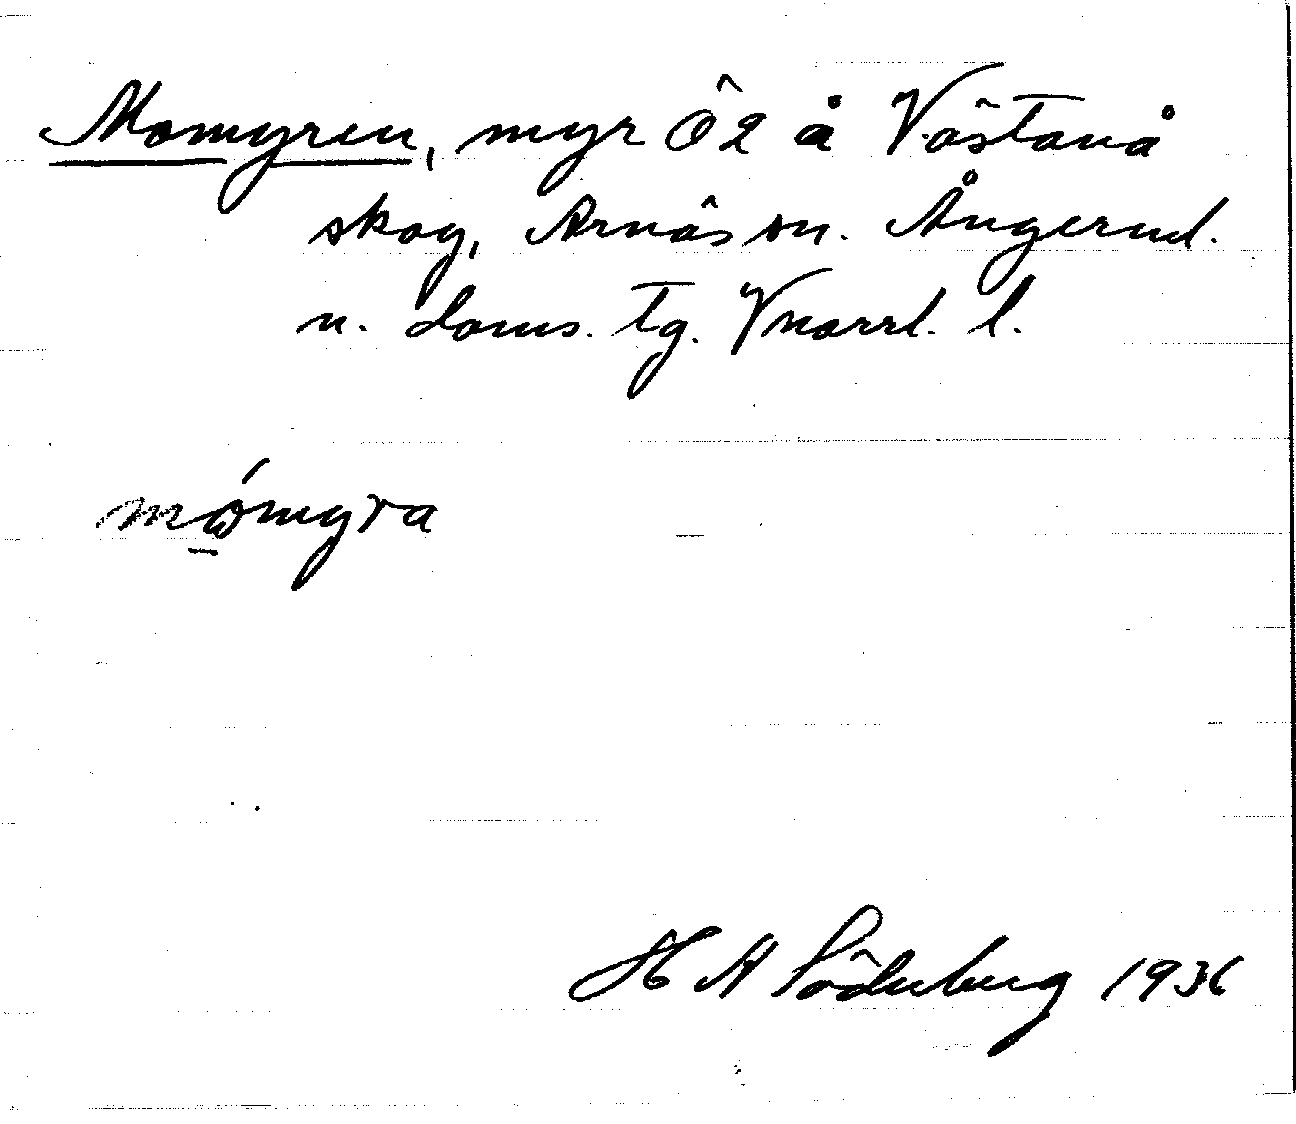 Momyren, myr Ö2 å Västanå
skog, Arnäs sn. Ångerml.
n. doms. tg. Vnorrl. l.
mómyra
H A Söderberg 1936